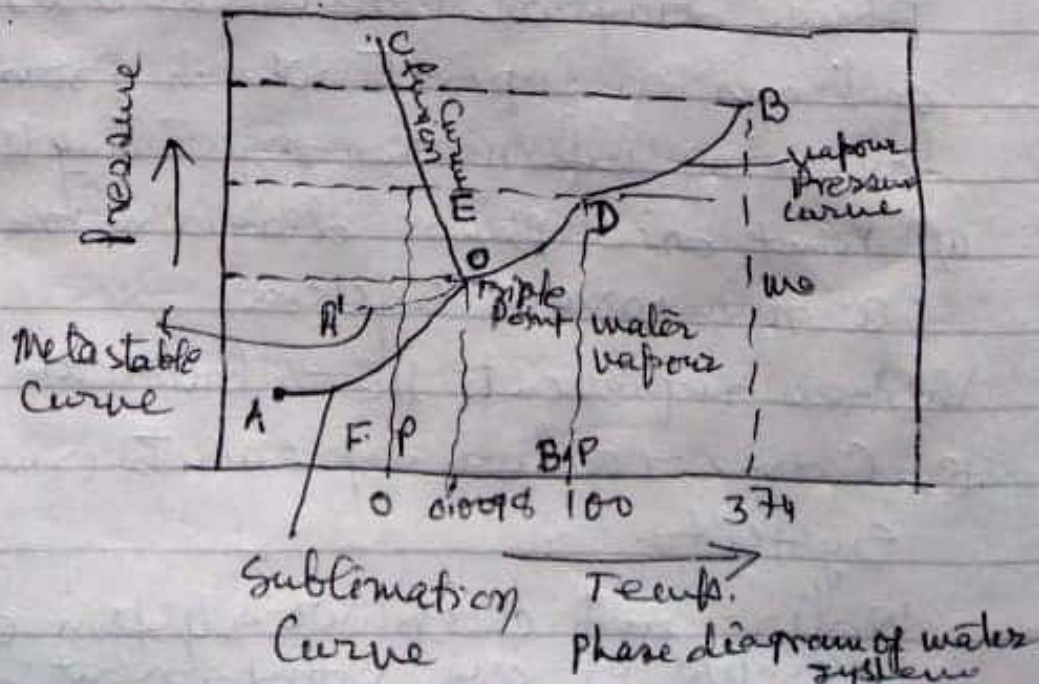 C
fusion
Curve
E
B
vapour
Pressure
curve
D
O
Triple
Point
water
vapour
A'
Metastable
Curve
A
F.P
B.P
0 0.0098 100 374
Pressure
Sublimation
Curve
Temp.
phase diagram of water
system